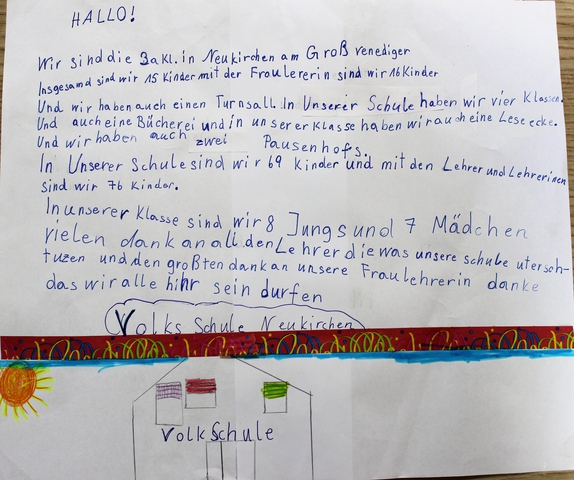 HALLO!
Wir sind die 3a Kl. in Neukirchen am Groß venediger
Insgesamd sind wir 15 Kinder mit der Froulererin sind wir 16 Kinder
Und wir haben auch einen Turnsall. In Unserer Schule haben wir vier Klassen.
Und auch eine Bücherei und in unserer Klasse haben wir auch eine Lese ecke.
Und wir haben auch zwei Pausenhofs.
In Unserer Schule sind wir 69 Kinder und mit den Lehrer und Lehrerinen
sind wir 76 Kinder.
In unserer Klasse sind wir 8 Jungs und 7 Mädchen
vielen dank an all den Lehrer die was unsere schule utersch-
tuzen und den großten dank an unsere Fraulehrerin danke
das wir alle hihr sein durfen
Volks Schule Neukirchen
Volk Schule